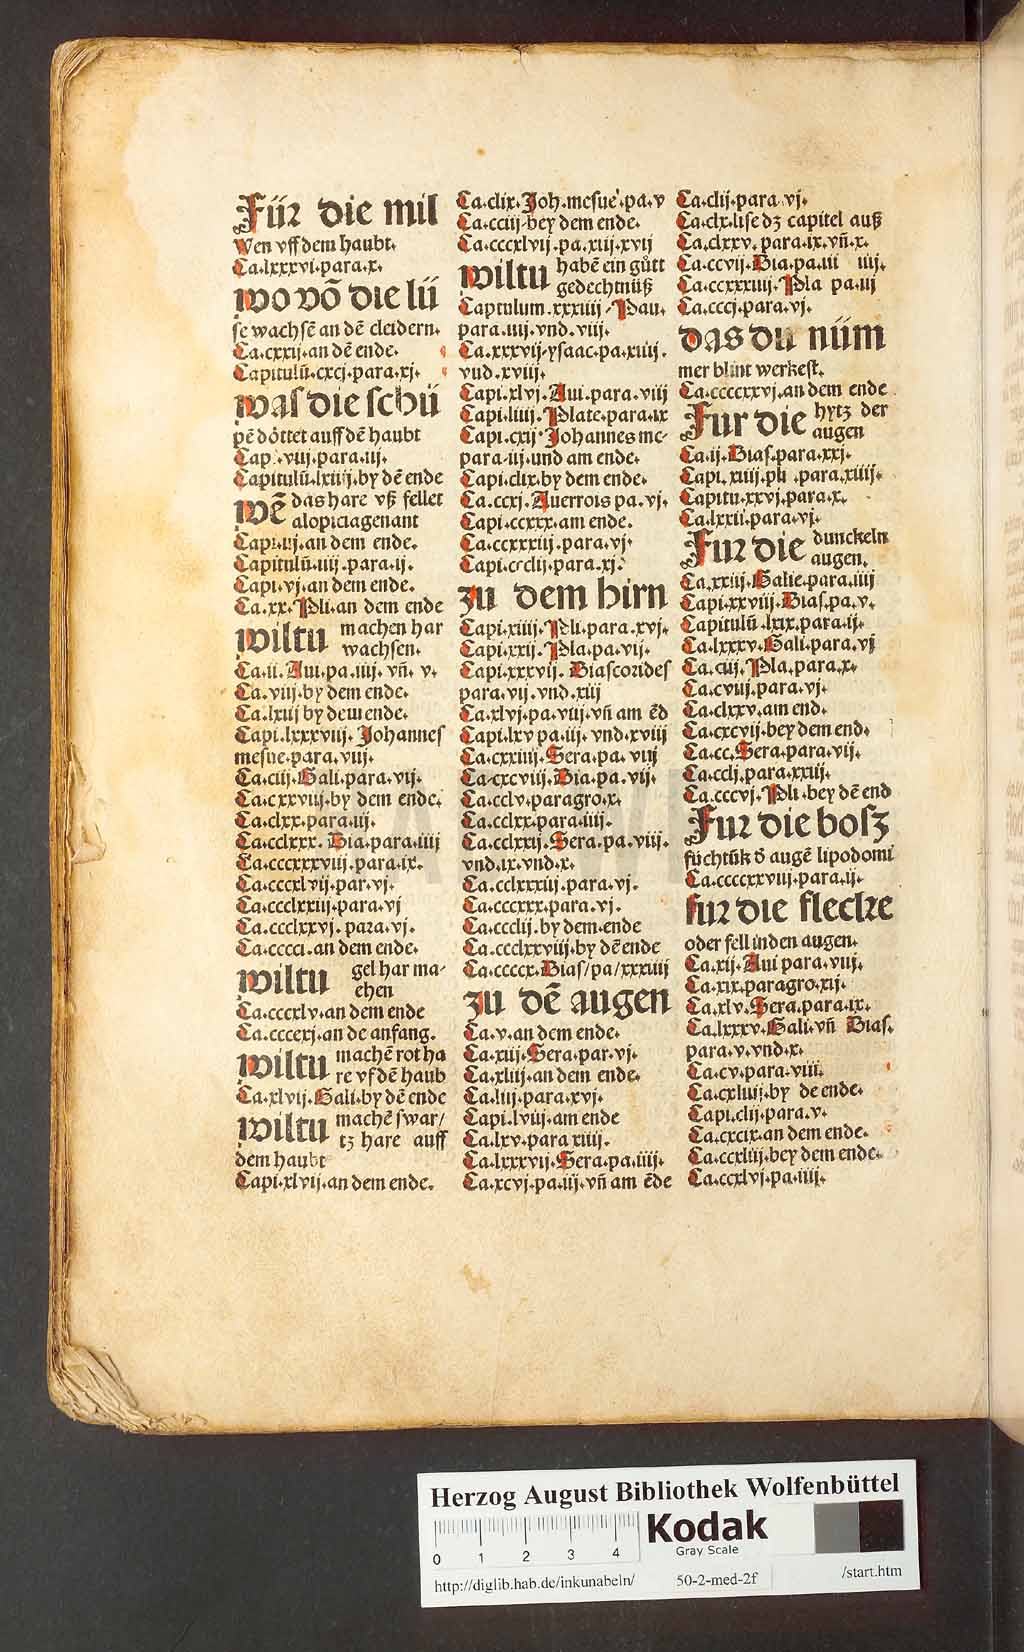 Für die mil
wen vff dem haubt.
Ca.lxxxvi.para.x.
wo vō die lü
se wachsē an dē cleidern.
Ca.cxxij.an dē ende.
Capitulū.cxcj.para.xj.
was die schü
pē döttet auff dē haubt
Cap.viij.para.iij.
Capitulū.lxiiij.by dē ende
wē das hare vß fellet
alopiciagenant
Capi.iij.an dem ende.
Capitulū.iiij.para.ij.
Capi.vj.an dem ende.
Ca.xx.Pli.an dem ende
wiltu machen har
wachsen.
Ca.ii.Aui.pa.iiij.vñ.v.
Ca.viij.by dem ende.
Ca.lxiij by dem ende.
Capi.lxxxviij.Johannes
mesue.para.viij.
Ca.ciij.Gali.para.vij.
Ca.cxxviij.by dem ende.
Ca.clxx.para.iij.
Ca.cclxxx.Dia.para.iiij
Ca.cccxxxviij.para.ix.
Ca.cccxlvij.par.vj.
Ca.ccclxxiij.para.vj
Ca.ccclxxvj.para.vj.
Ca.ccccci.an dem ende.
wiltu gel har ma-
chen
Ca.cccxlv.an dem ende
Ca.ccccxj.an de anfang.
wiltu machē rot ha
re vf dē haub
Ca.xlvij.Gali.by dē ende
wiltu machē swar/
tz hare auff
dem haubt
Capi.xlvij.an dem ende.
Ca.clix.Joh.mesue.pa.v
Ca.cciij.bey dem ende.
Ca.cccxlvij.pa.xiij.xvij
wiltu habē ein gůtt
gedechtnüß
Captulum.xxxiiij.Pau.
para.iiij.vnd.viij.
Ca.xxxvij.ysaac.pa.xiiij.
vnd.xviij.
Capi.xlvj.Aui.para.viij
Capi.liiij.Plate.para.ix
Capi.cxij.Johannes me-
para.iij.und am ende.
Capi.clix.by dem ende.
Ca.ccxj.Auerrois pa.vj.
Capi.ccxxx.am ende.
Ca.ccxxxiij.para.vj.
Capi.cclij.para.xj.
zu dem hirn
Capi.xiiij.Pli.para.xvj.
Capi.xxij.Pla.pa.vij.
Capi.xxxvij.Diascorides
para.vij.vnd.xiij
Ca.xlvj.pa.viij.vñ am ēd
Capi.lxv pa.iij.vnd.xviij
Ca.cxxiiij.Sera.pa.viij
Ca.cxcviij.Dia.pa.vij.
Ca.cclv.paragro.x.
Ca.cclxx.para.iiij.
Ca.cclxxij.Sera.pa.viij.
vnd.ix.vnd.x.
Ca.cclxxxiij.para.vj.
Ca.cccxxx.para.vj.
Ca.cccliij.by dem ende
Ca.ccclxxviij.by dē ende
Ca.ccccx.Dias/pa/xxxiiij
zu dē augen
Ca.v.an dem ende.
Ca.xiij.Sera.par.vj.
Ca.xliij.an dem ende.
Ca.liij.para.xvj.
Capi.lviij.am ende
Ca.lxv.para xiiij.
Ca.lxxxvij.Sera.pa.iiij.
Ca.xcvj.pa.iij.vñ am ēde
Ca.clij.para.vj.
Ca.clx.lise dz capitel auß
Ca.clxxv.para.ix.vñ.x.
Ca.ccvij.Dia.pa.iii iiij.
Ca.ccxxxiiij.Pla pa.iij
Ca.cccj.para.vj.
das du nüm
mer blint werkest.
Ca.ccccxxvj.an dem ende
Fur die hytz der
augen
Ca.ij.Dias.para.xxj.
Capi.xiiij.pli.para.xiiij.
Capitu.xxvj.para.x.
Ca.lxxii.para.vj.
Fur die dunckeln
augen.
Ca.xxiij.Galie.para.iiij
Capi.xxviij.Dias.pa.v.
Capitulū.lxix.para.ij.
Ca.lxxxv.Gali.para.vj
Ca.ciij.Pla.para.x.
Ca.cviij.para.vj.
Ca.clxxv.am end.
Ca.cxcvij.bey dem end.
Ca.cc.Sera.para.vij.
Ca.cclj.para.xxiij.
Ca.cccvj.Pli.bey dē end
Fur die bosz
füchtūk d augē lipodomi
Ca.ccccxxviij.para.ij.
fur die flecke
oder fell inden augen.
Ca.xij.Aui para.viij.
Ca.xix.paragro.xij.
Ca.xlv.Sera.para.ix.
Ca.lxxxv.Gali.vñ Dias.
para.v.vnd.x.
Ca.cv.para.viii.
Ca.cxliiij.by de ende.
Capi.clij.para.v.
Ca.cxcix.an dem ende.
Ca.ccxliij.bey dem ende.
Ca.ccxlvj.pa.iiij.
Herzog August Bibliothek Wolfenbüttel
0 1 2 3 4
Kodak
Gray Scale
http://diglib.hab.de/inkunabeln/ 50-2-med-2f /start.htm